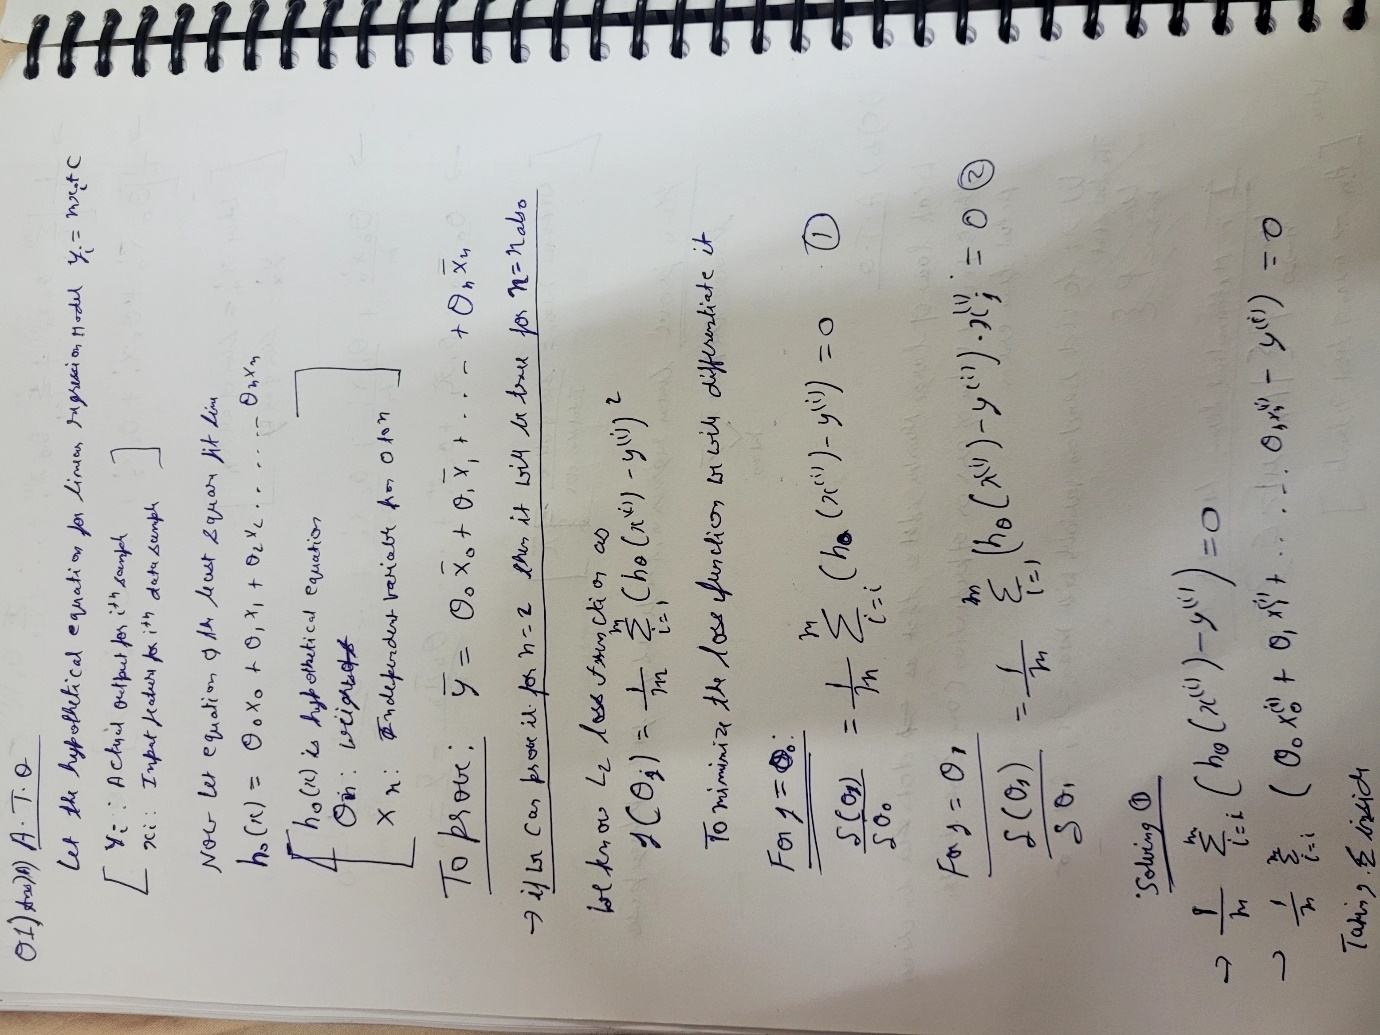 Q1) Ans) A) A.T.Q
Let the hypothetical equation for linear regression Model yᵢ = mxᵢ + C
[ yᵢ : Actual output for iᵗʰ sample
xi : Input feature for iᵗʰ data sample ]
Now let equation of the least square fit line
h₀(x) = θ₀x₀ + θ₁x₁ + θ₂x₂ ....... θₙxₙ
[ h₀(x) is hypothetical equation
θn : weights
xn : Independent variable from 0 to n ]
To prove : ȳ = θ₀x̄₀ + θ₁x̄₁ + ... - + θₙx̄ₙ
→ if we can prove it for n=2 then it will be true for n=n also
we know L₂ loss function as
J(θⱼ) = 1/m Σᵢ₌₁ᵐ (hθ(x⁽ⁱ⁾) - y⁽ⁱ⁾)²
To minimize the loss function we will differentiate it
For j = θ₀:
δ(θⱼ)/δθ₀ = 1/m Σᵢ₌ᵢᵐ (hθ(x⁽ⁱ⁾) - y⁽ⁱ⁾) = 0 ①
For j = θ₁
δ(θⱼ)/δθ₁ = 1/m Σᵢ₌₁ᵐ (hθ(x⁽ⁱ⁾) - y⁽ⁱ⁾) . x⁽ⁱ⁾ⱼ = 0 ②
Solving ①
→ 1/m Σᵢ₌ᵢᵐ (hθ(x⁽ⁱ⁾) - y⁽ⁱ⁾) = 0
→ 1/m Σᵢ₌ᵢᵐ (θ₀x₀⁽ⁱ⁾ + θ₁x₁⁽ⁱ⁾ + ...... θₙxₙ⁽ⁱ⁾ - y⁽ⁱ⁾) = 0
Taking Σ inside